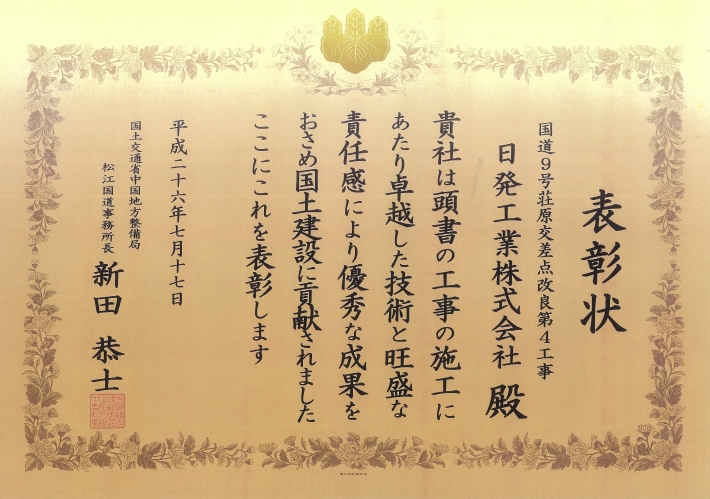 表彰状
国道9号荘原交差点改良第4工事
日発工業株式会社 殿
貴社は頭書の工事の施工に
あたり卓越した技術と旺盛な
責任感により優秀な成果を
おさめ国土建設に貢献されました
ここにこれを表彰します
平成二十六年七月十七日
国土交通省中国地方整備局
松江国道事務所長
新田 恭士